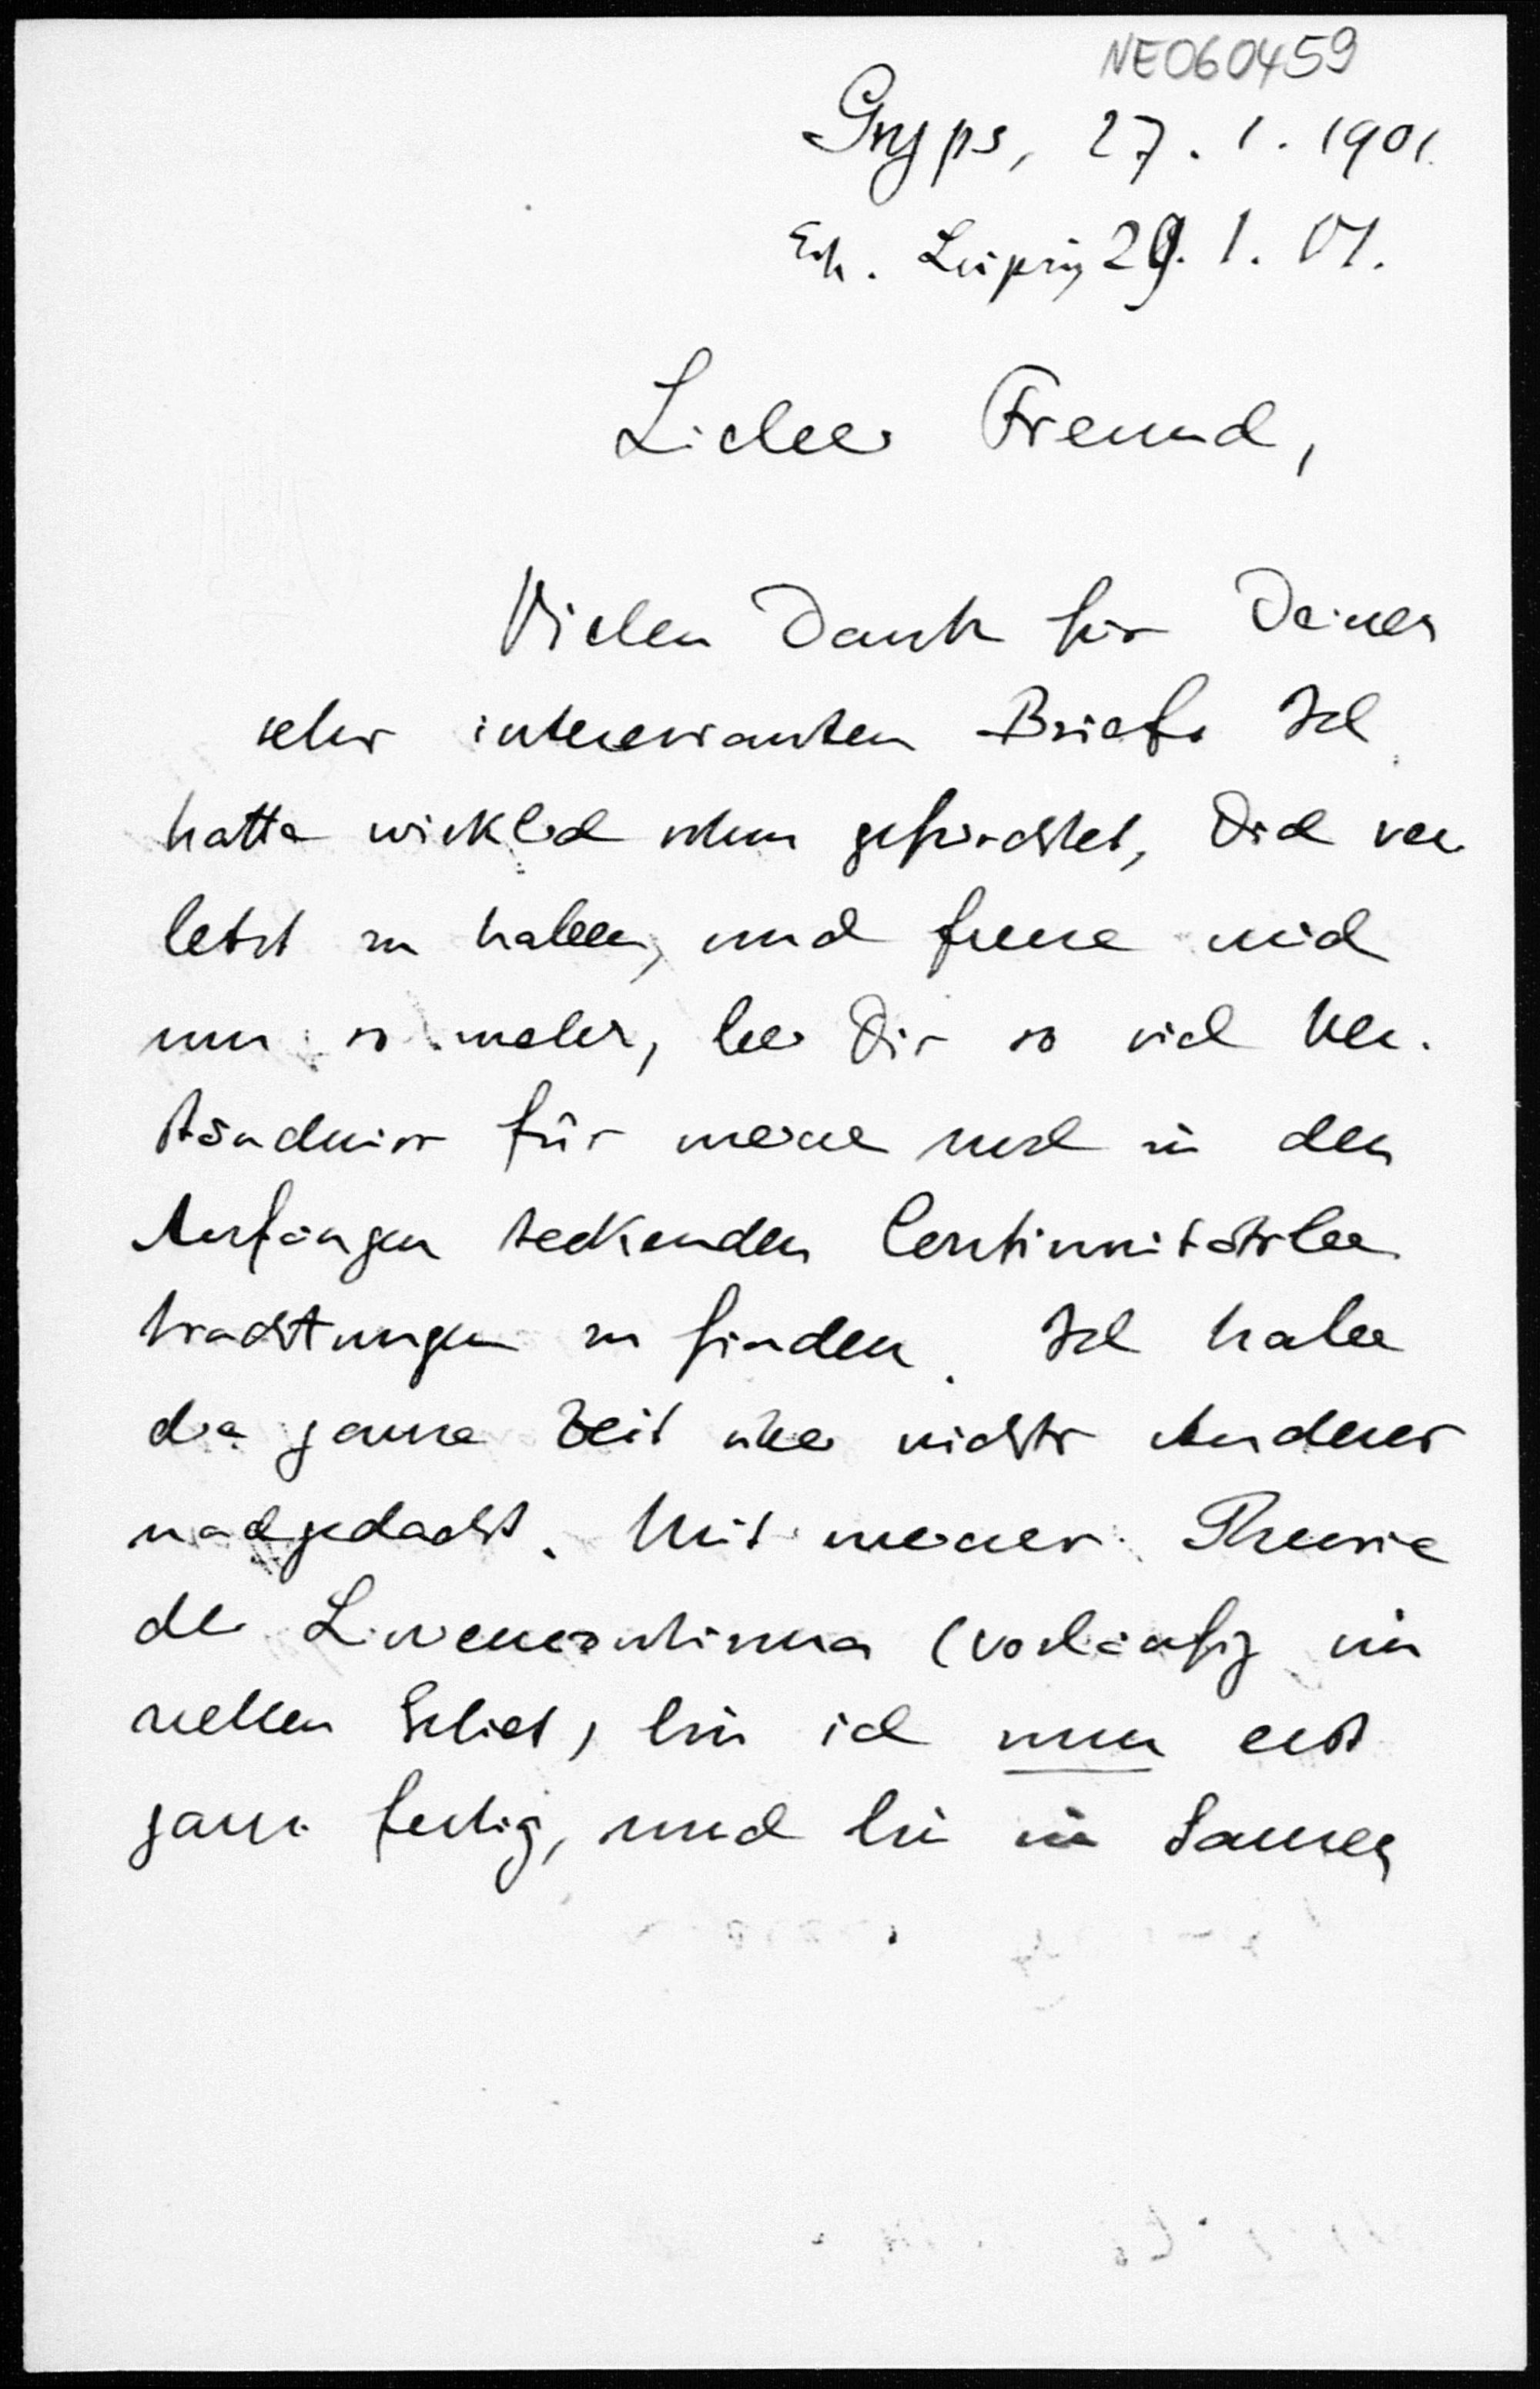 NE060459
Gryps, 27. 1. 1901.
Erh. Leipzig 29. 1. 01.
Lieber Freund,
Vielen Dank für Deinen
sehr interessanten Brief. Ich
hatte wirklich schon gefürchtet, Dich ver
letzt zu haben, und freue mich
um so mehr, bei Dir so viel Ver-
ständniss für meine noch in den
Anfängen steckenden Continuitätsbe
trachtungen zu finden. Ich habe
die ganze Zeit über nichts Anderes
nachgedacht. Mit meiner Theorie
des Linearcontinuums (vorläufig im
reellen Gebiet) bin ich nun erst
ganz fertig, und bin im Ganzen